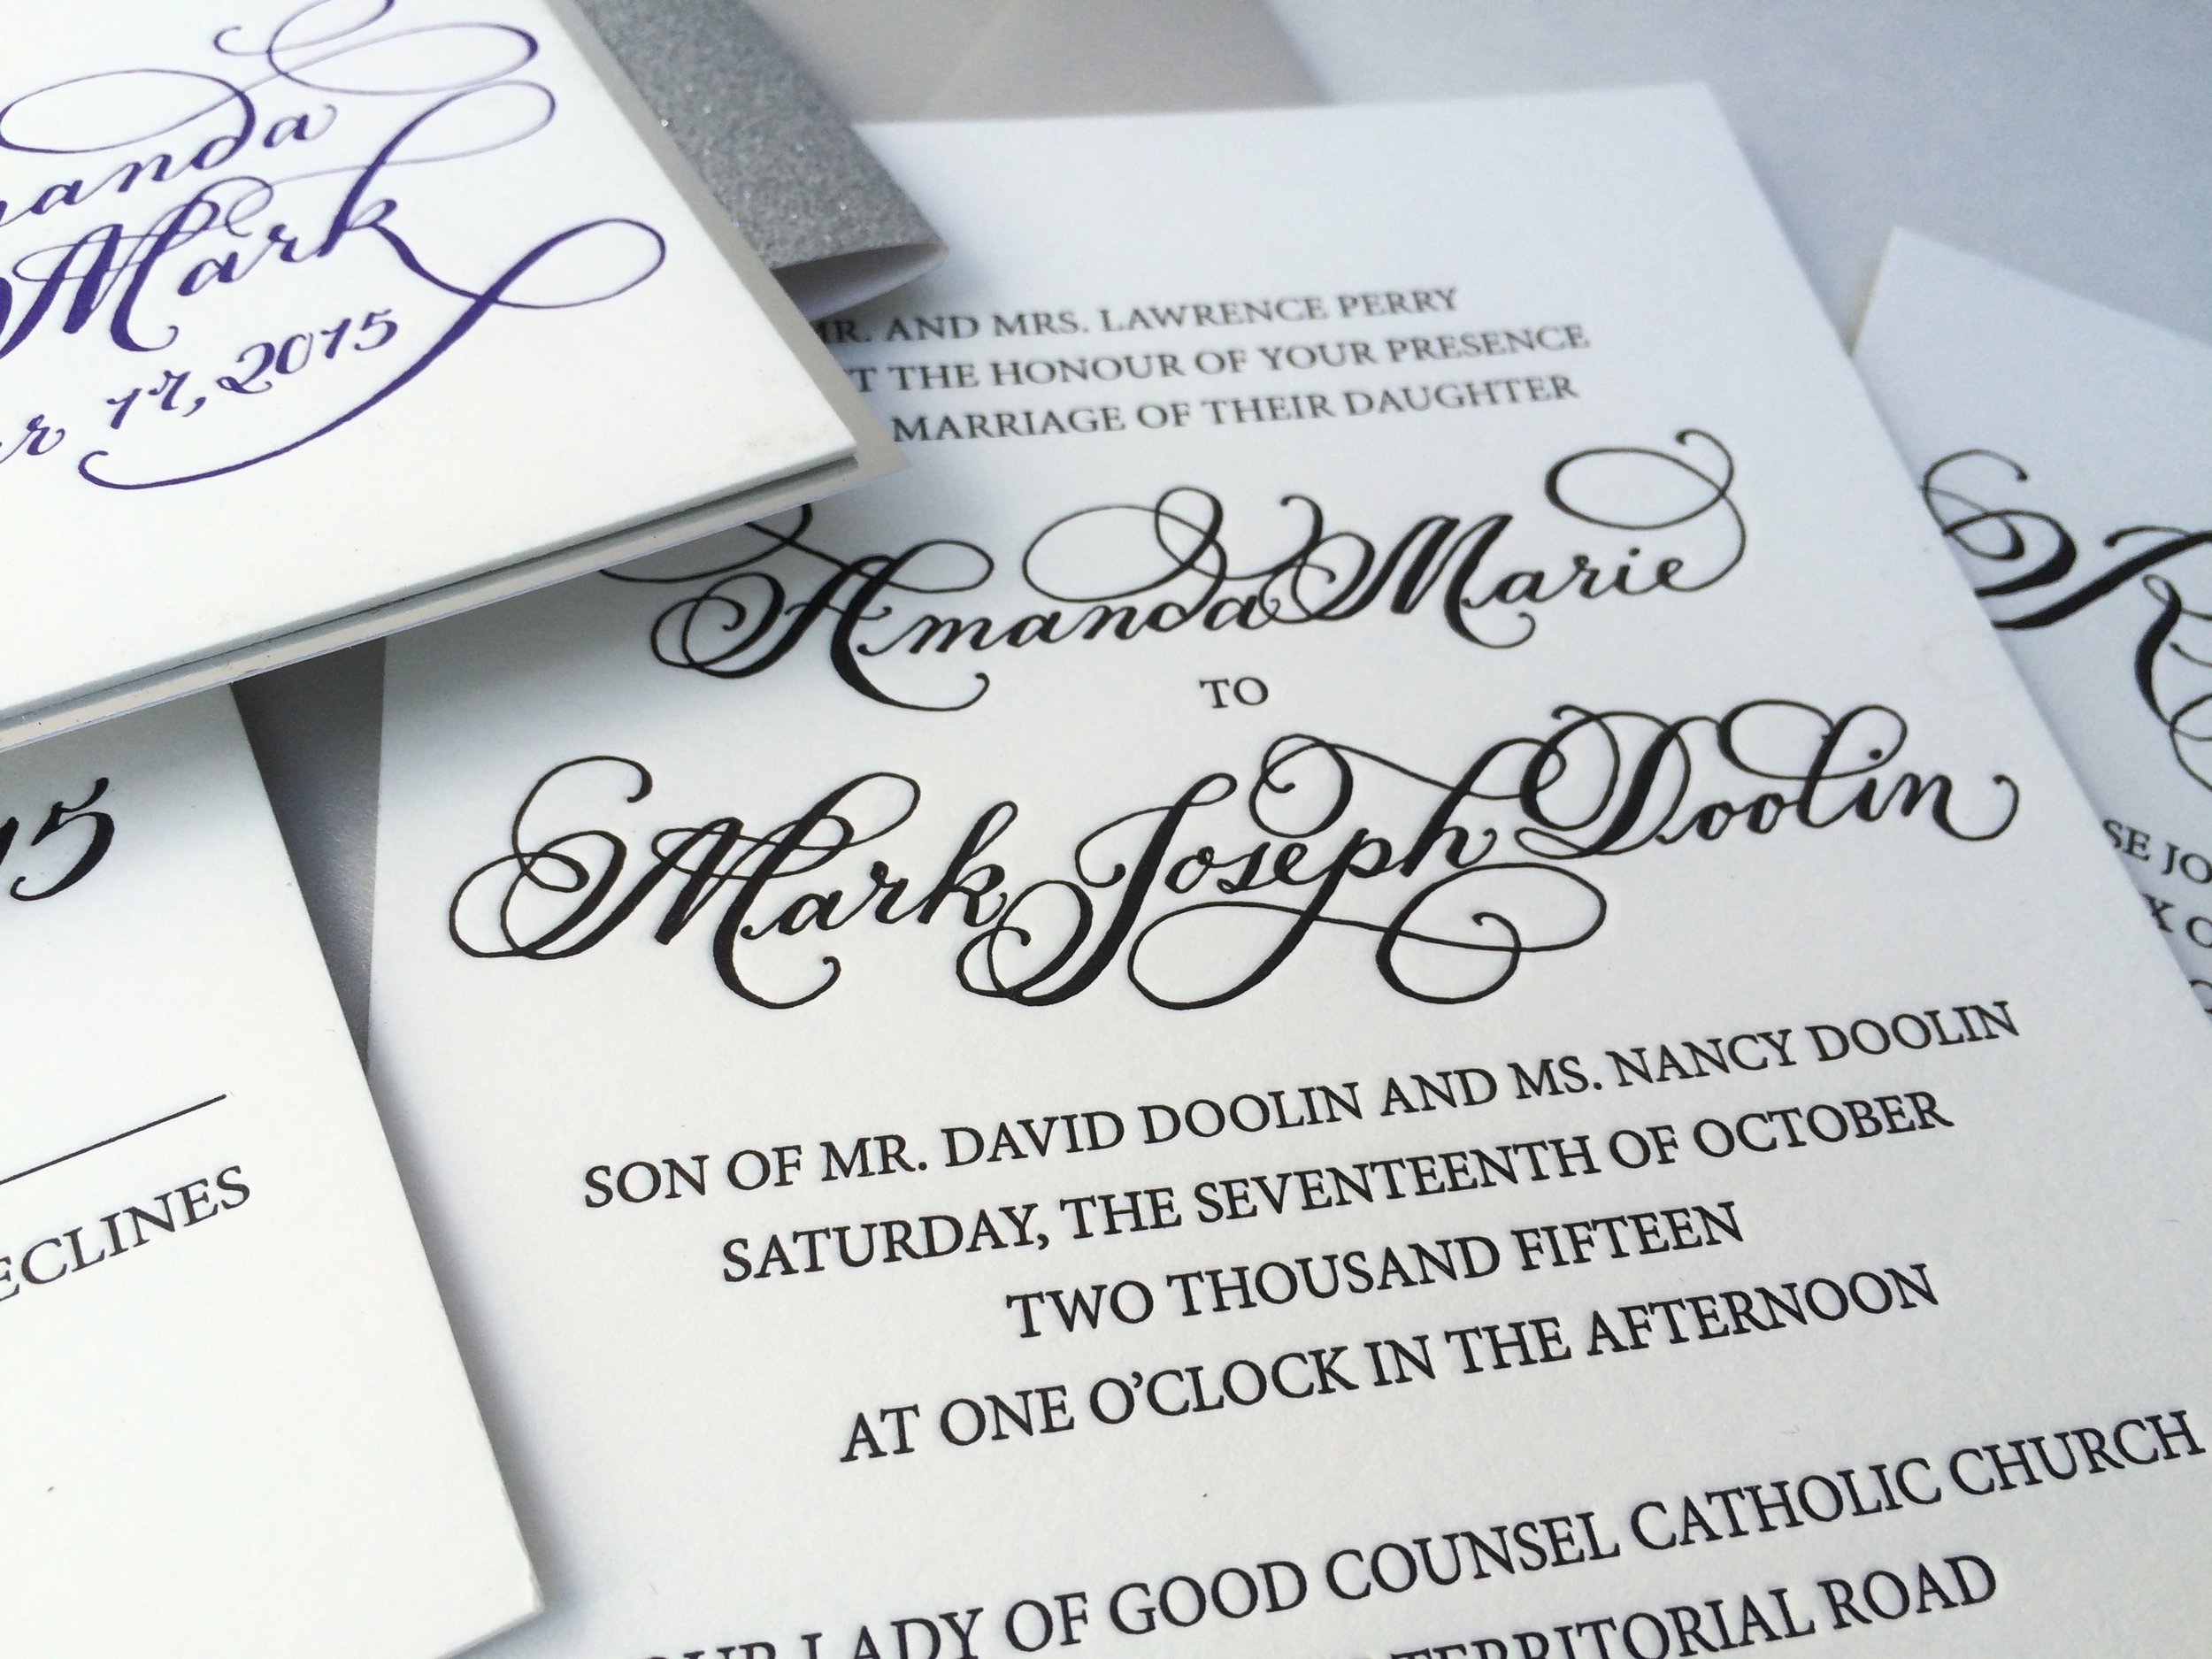 Mark
17, 2015
AND MRS. LAWRENCE PERRY
THE HONOUR OF YOUR PRESENCE
MARRIAGE OF THEIR DAUGHTER
Amanda Marie
TO
Mark Joseph Doolin
SON OF MR. DAVID DOOLIN AND MS. NANCY DOOLIN
SATURDAY, THE SEVENTEENTH OF OCTOBER
TWO THOUSAND FIFTEEN
AT ONE O'CLOCK IN THE AFTERNOON
LADY OF GOOD COUNSEL CATHOLIC CHURCH
TERRITORIAL ROAD